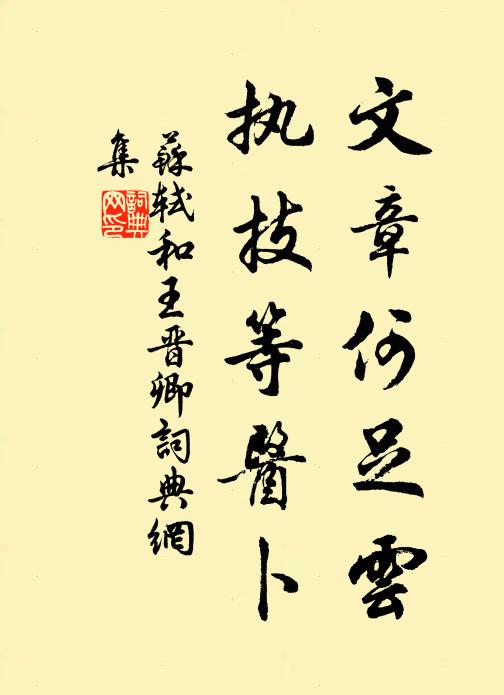 文章何足雲
执技等醫卜
蘇軾和王晋卿詞典網
集
詞典
网印